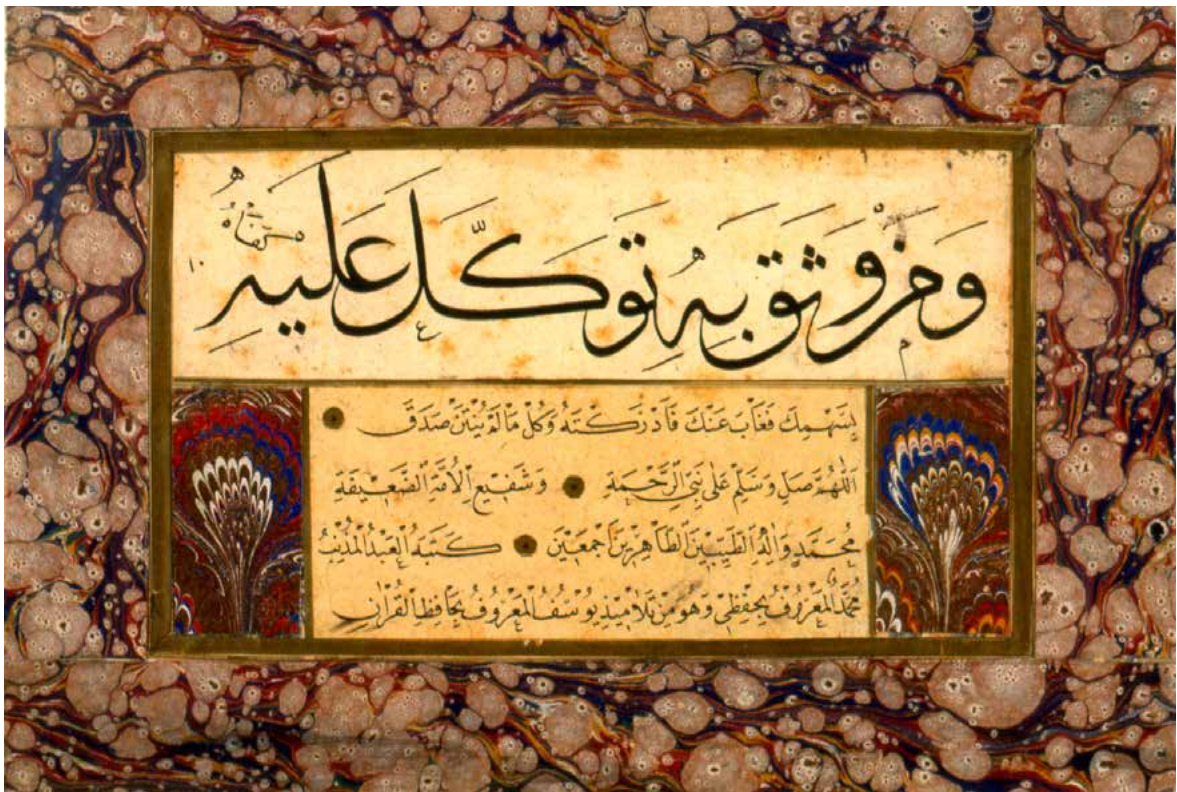 وَمَنْ وَثِقَ بِهِ تَوَكَّلَ عَلَيْهِ
بِسَهْمِكَ فَغَابَ عَنْكَ فَادْرَكْتَهُ وَكُلْ مَا لَمْ يُنْتِنْ صَدَقَ
اَللّٰهُمَّ صَلِّ وَسَلِّمْ عَلٰى نَبِيِّ الرَّحْمَةِ وَشَفِيعِ الْاُمَّةِ الضَّعِيفَةِ
مُحَمَّدٍ وَاٰلِهِ الطَّيِّبِينَ الطَّاهِرِينَ اَجْمَعِينَ كَتَبَهُ الْعَبْدُ الْمُذْنِبُ
مُحَمَّدُ الْمَعْرُوفُ بِحِفْظِي وَهُوَ مِنْ تَلَامِيذِ يُوسُفُ الْمَعْرُوفُ بِحَافِظِ الْقُرْاٰنِ